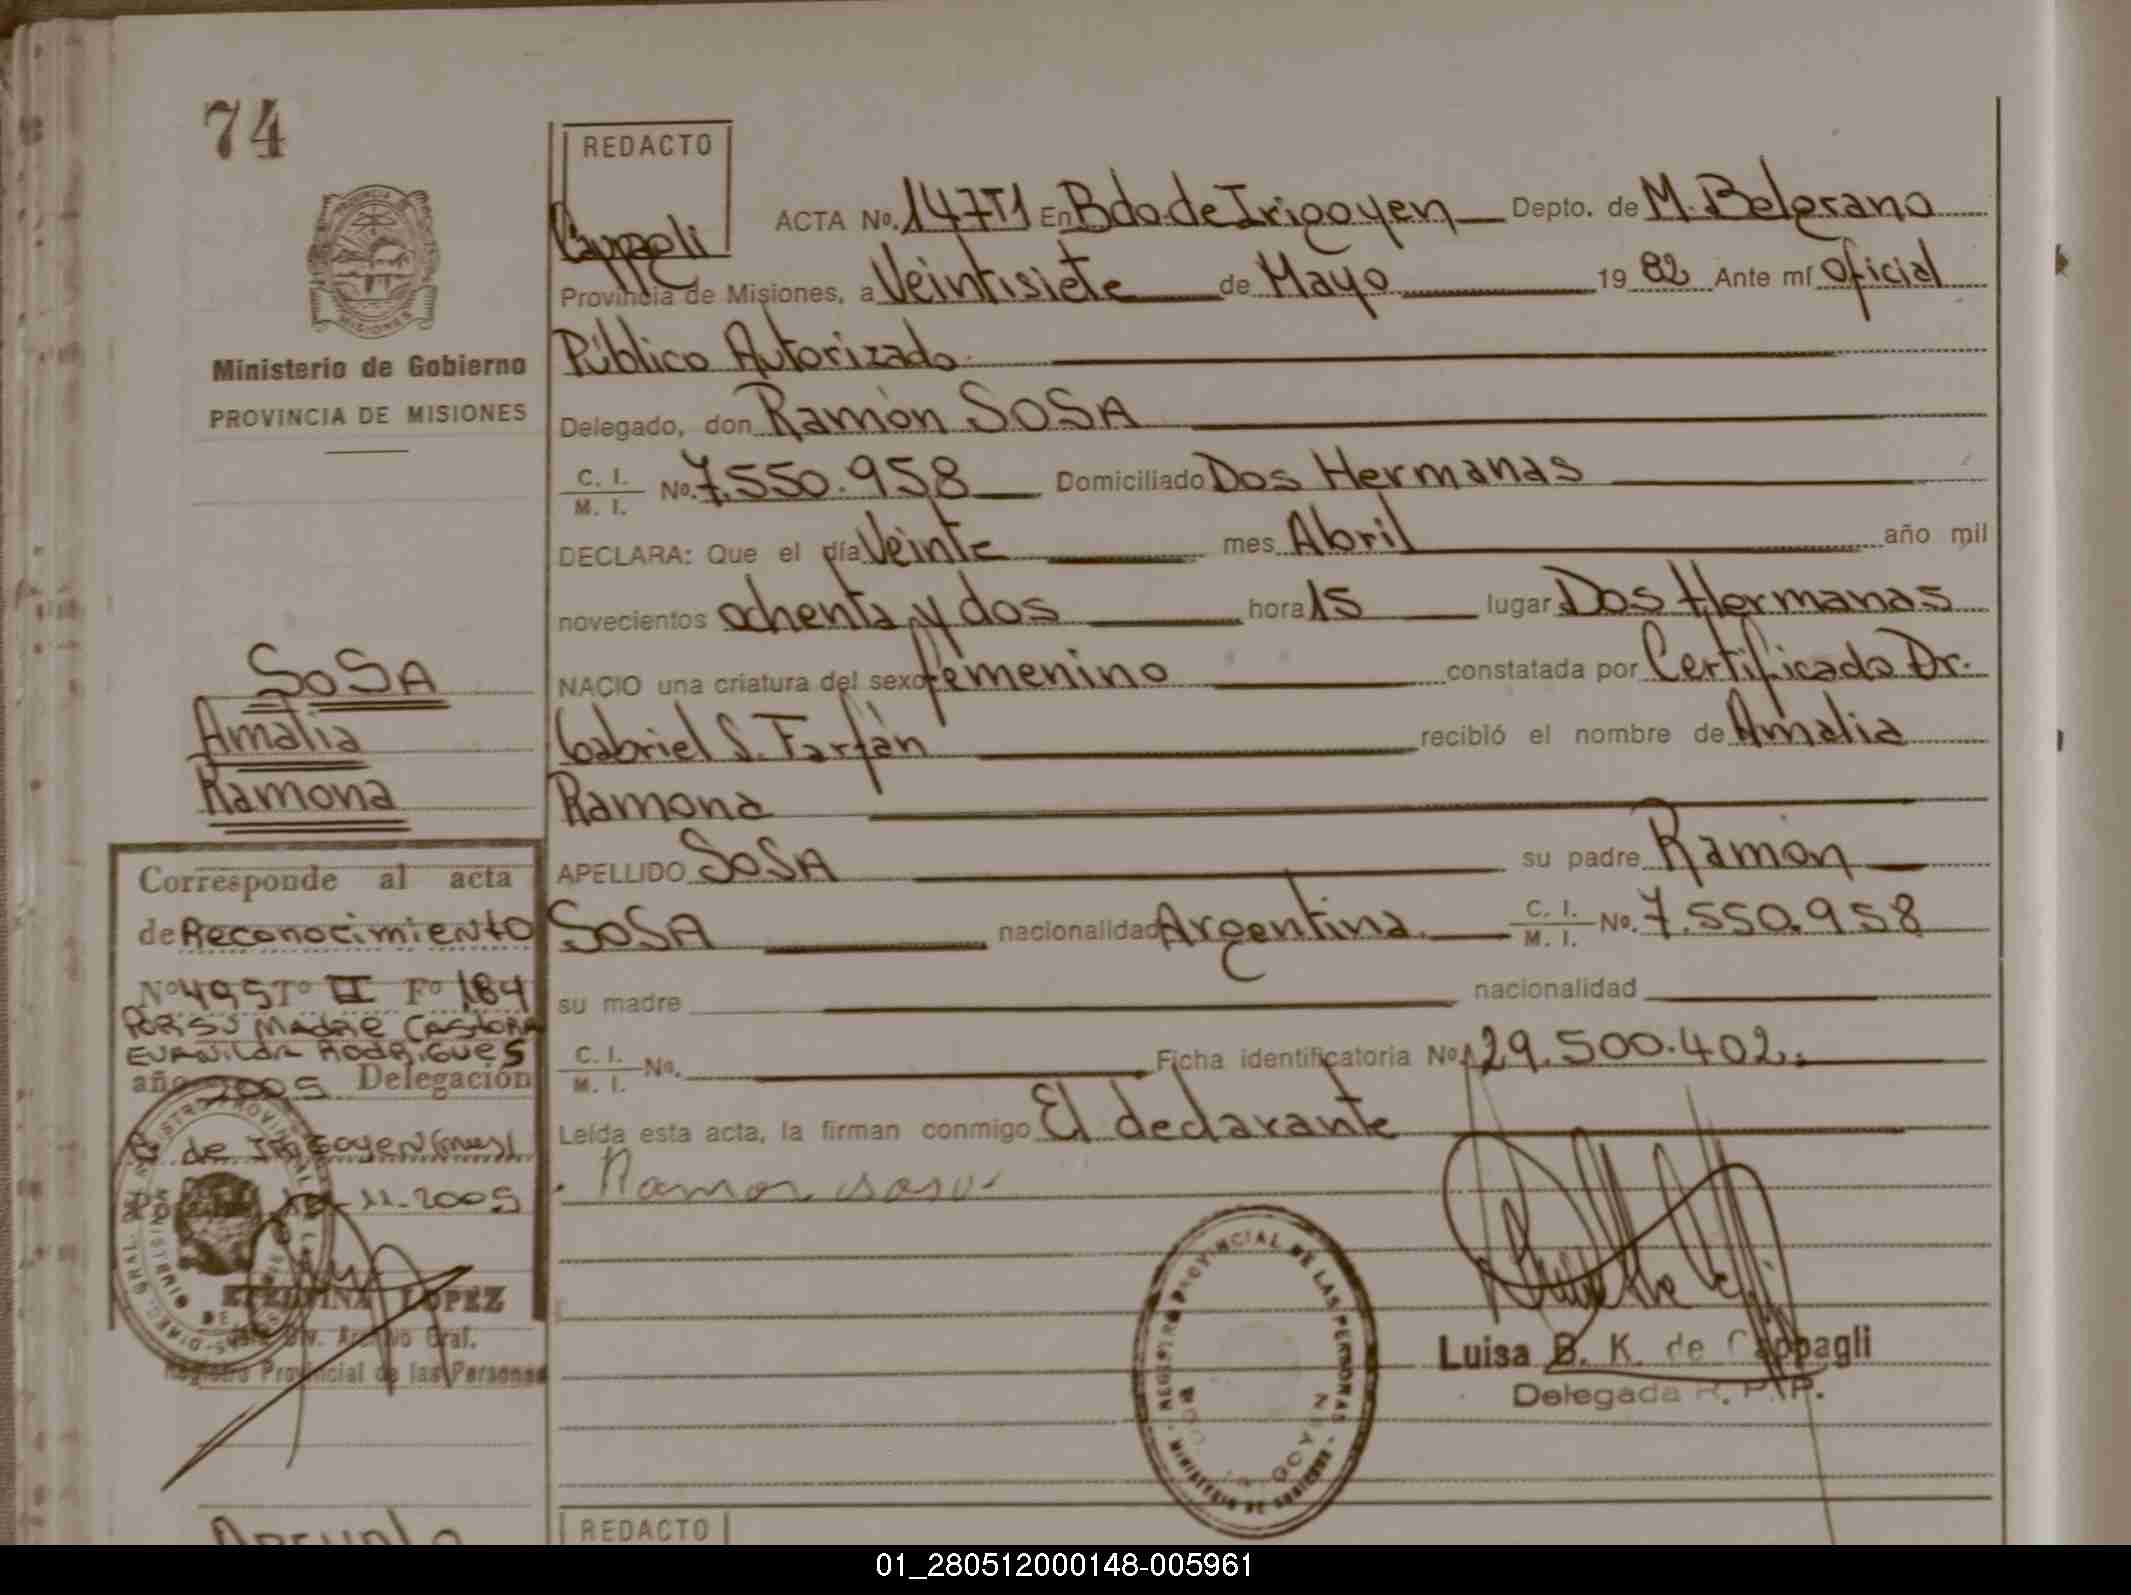 74
REDACTO
Cappagli
ACTA No. 147T1 En Bdo. de Irigoyen Depto. de M. Belgrano
Provincia de Misiones, a Veintisiete de Mayo 19 82 Ante mí Oficial
Público Autorizado
Delegado, don Ramón SOSA
C. I.
M. I.
No. 7.550.958 Domiciliado Dos Hermanas
DECLARA: Que el día Veinte mes Abril año mil
novecientos ochenta y dos hora 15 lugar Dos Hermanas
NACIO una criatura del sexo femenino constatada por Certificado Dr.
Gabriel S. Farfán recibió el nombre de Amalia
Ramona
APELLIDO SOSA su padre Ramón
SOSA nacionalidad Argentina C. I. M. I. No. 7.550.958
su madre nacionalidad
C. I. M. I. No. Ficha identificatoria No. 29.500.402.
Leída esta acta, la firman conmigo El declarante
Ramon sosa
Luisa B. K. de Cappagli
Delegada R. P. P.
REGISTRO PROVINCIAL DE LAS PERSONAS
PROVINCIA
MISIONES
Ministerio de Gobierno
PROVINCIA DE MISIONES
SOSA
Amalia
Ramona
Corresponde al acta
de Reconocimiento
No 495 To II Fo 184
POR SU MADRE CASTORA
EVANILDA RODRIGUES
año 2005 Delegación
B. de IRIGOYEN (Mnes)
11-2005
LOPEZ
Div. Archivo Gral.
Registro Provincial de las Personas
REDACTO
01_280512000148-005961